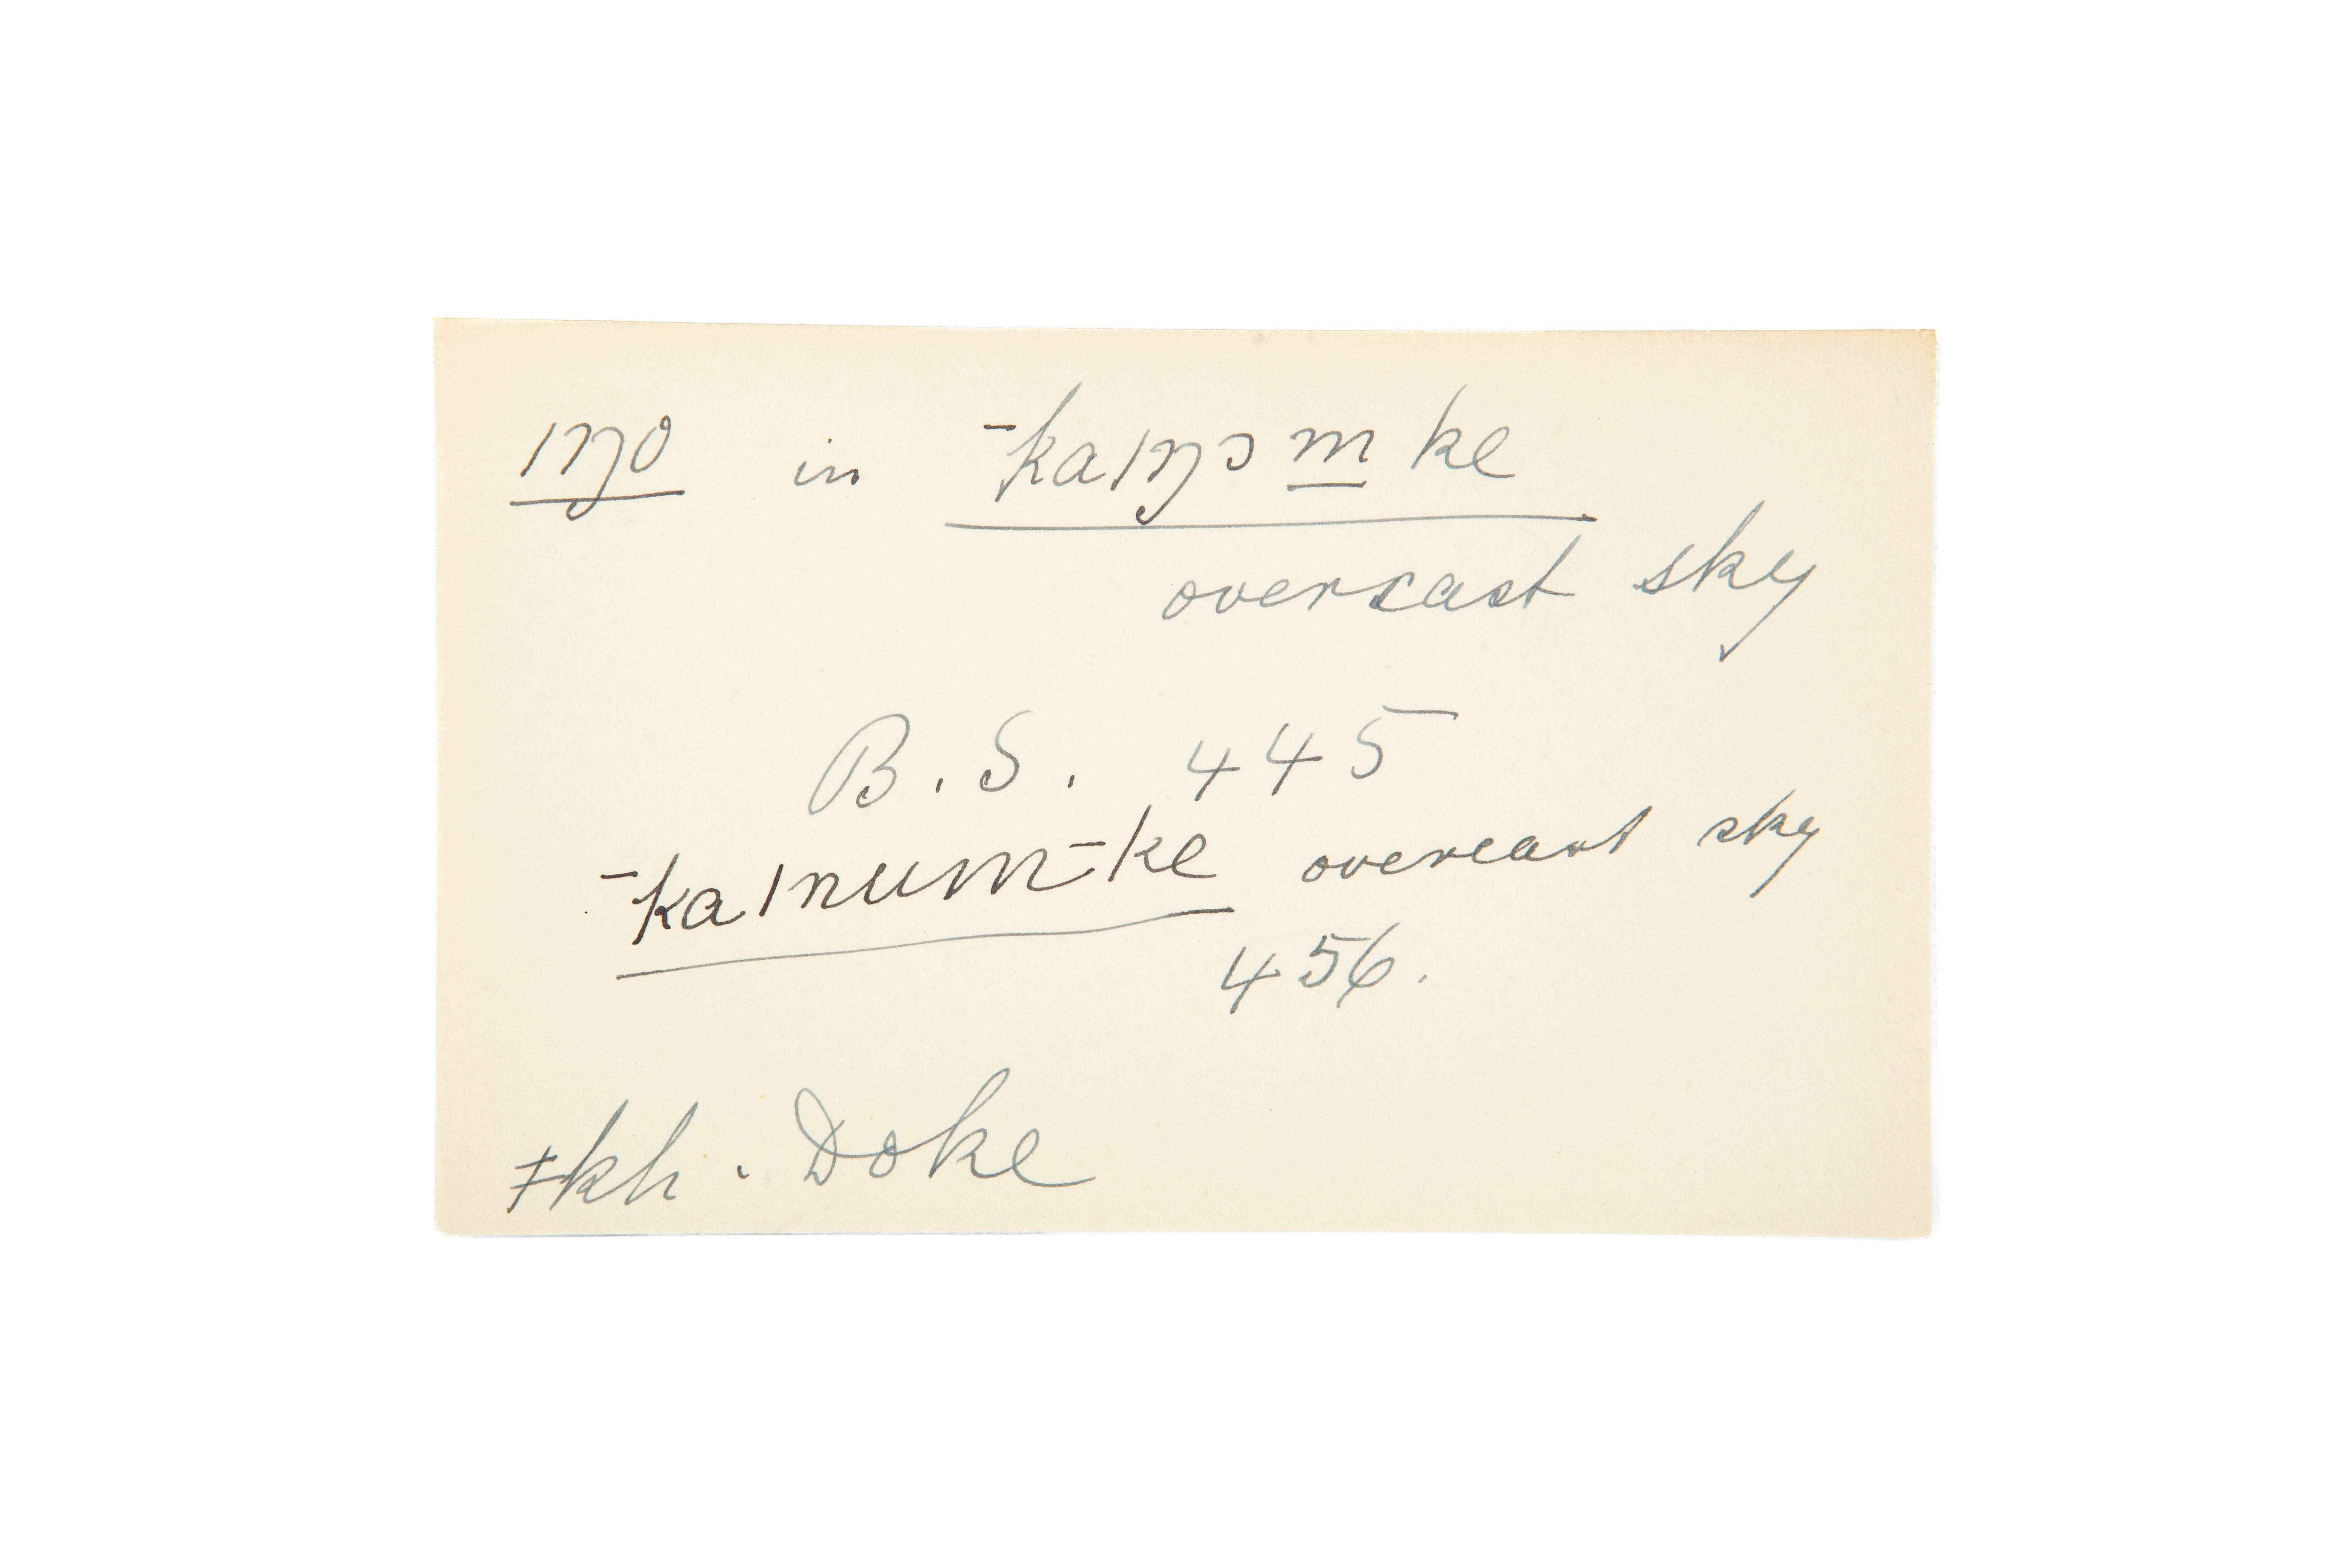 ǀŋo in ˉkaǀŋɔm ke
overcast sky
B. S. 445
ˉkaǀnumˉke overcast sky
456.
ǂkh. Doke